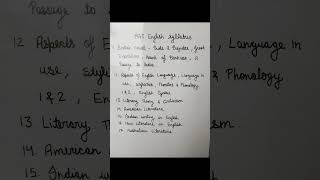 English Syllabus
British Novel - Pride & Prejudice, Great
Expectations, Heart of Darkness, A
Passage to India
12. Aspects of English Language, Language In
use, Stylistics, Phonetics & Phonology
1 & 2, English Syntax
13. Literary Theory & Criticism
14. American Literature
15. Indian writing in English
16. New Literatures in English
17. Australian Literature
Passage to
12. Aspects of E
, Language In
use, Styli
1 & 2, En
13. Literary
14. American
15. Indian